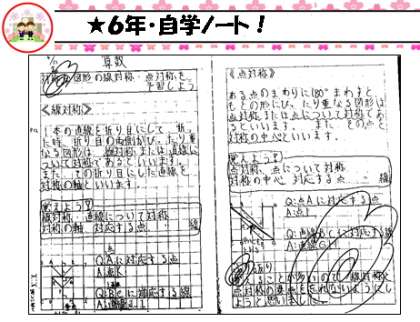 ★6年・自学ノート！
算数
図形の線対称・点対称を
予習しよう
《線対称》
1本の直線を折り目にして、折っ
た時、折り目の両側がぴったり重
なる図形は、線対称または直線に
ついて対称であるといいます。
また、その折り目にした直線を
対称の軸といいます。
覚えよう!
線対称・直線について対称
対称の軸 対応する点 線
Q:Aに対応する点
A:点
Q:に対応する線
A:直線
《点対称》
ある点のまわりに180°まわすと、
もとの形にぴったり重なる図形は
点対称または点について対称であ
るといいます。また、その点を
対称の中心といいます。
覚えよう!
点対称、点について対称
対称の中心 対応する点 線
Q:点Aに対応する点
A:点
Q:直線BCに対応する
A:直線
ことが多いので、線対称と
点対称の意味を忘れないように
しようと思いました。